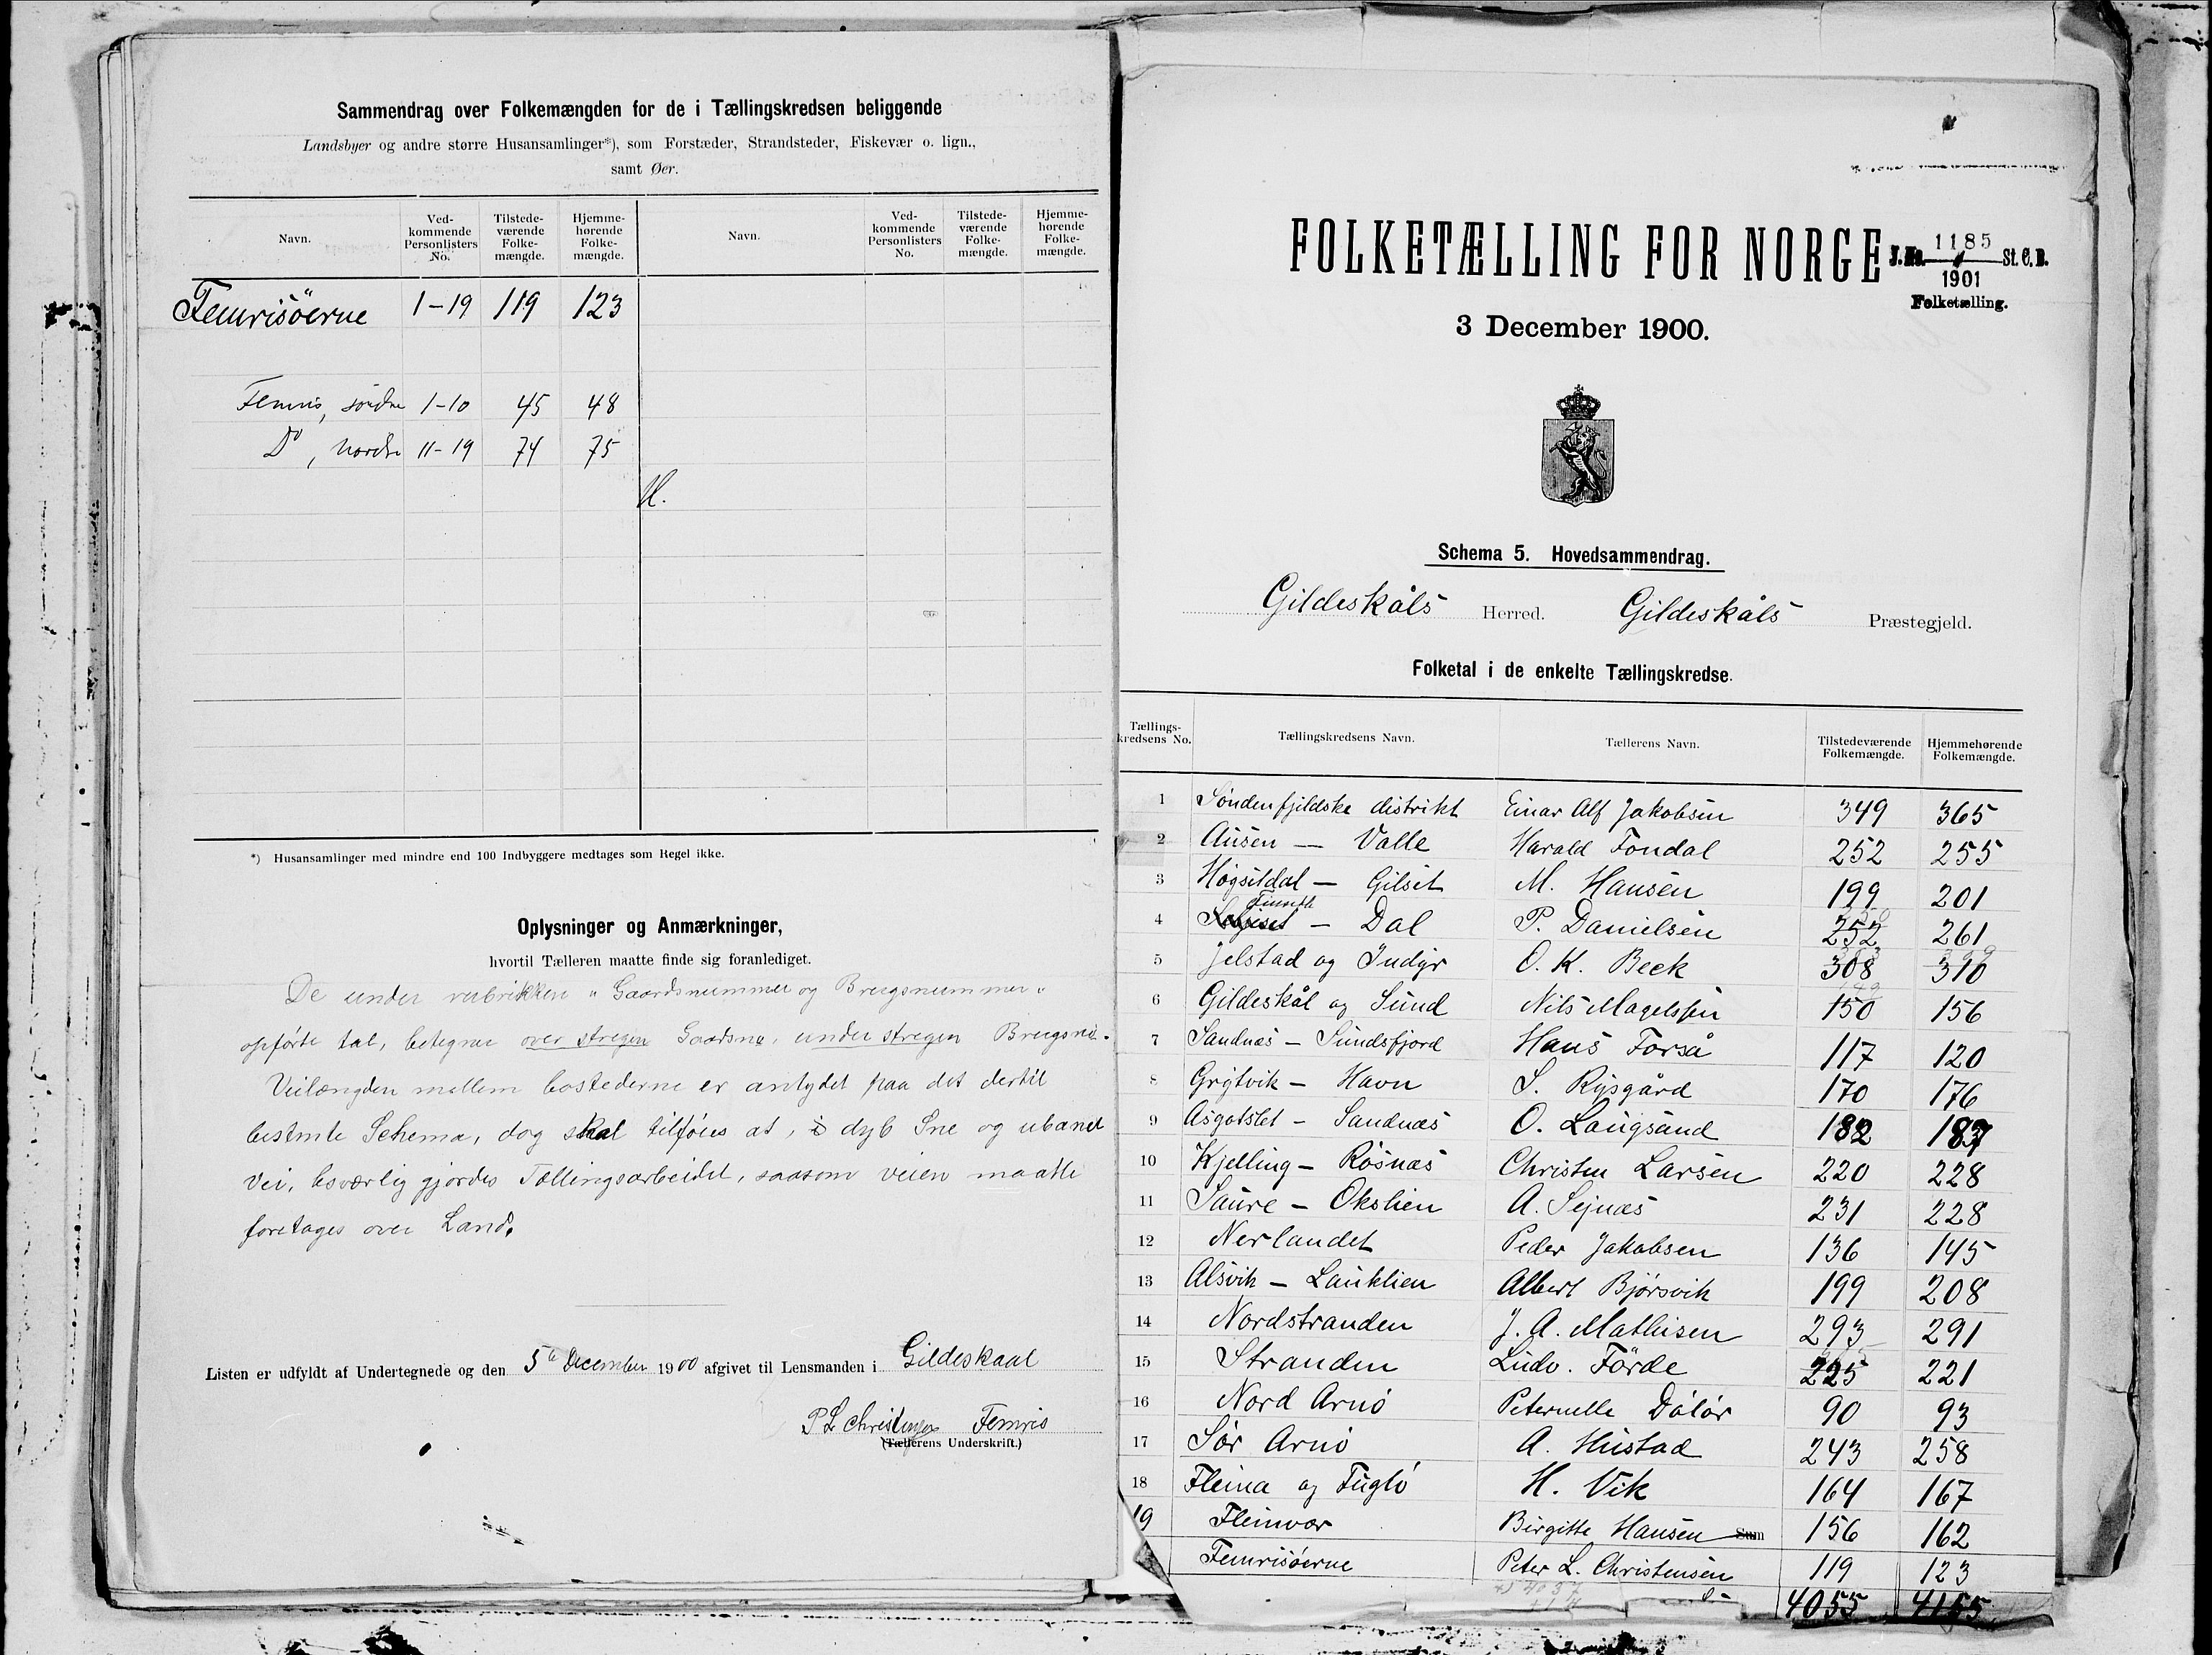 Sammendrag over Folkemængden for de i Tællingskredsen beliggende
Landsbyer og andre større Husansamlinger*), som Forstæder, Strandsteder, Fiskevær o. lign.,
samt Øer.
Navn. Vedkommende Personlisters No. Tilstedeværende Folkemængde. Hjemmehørende Folkemængde. Navn. Vedkommende Personlisters No. Tilstedeværende Folkemængde. Hjemmehørende Folkemængde.
Femrisöerne 1-19 119 123
Femris, söndre 1-10 45 48
Do, nordre 11-19 74 75
H.
*) Husansamlinger med mindre end 100 Indbyggere medtages som Regel ikke.
Oplysninger og Anmærkninger,
hvortil Tælleren maatte finde sig foranlediget.
De under rubrikken "Gaardsnummer og Brugsnummer"
opførte tal, betegner over stregen Gaardsno, under stregen Brugsno.
Veilængden mellem bostederne er antydet paa det dertil
bestemte Schema, dog skal tilføies at, i dyb Sne og ubanet
Vei, besværlig gjordes Tællingsarbeidet, saasom veien maatte
foretages over Land.
Listen er udfyldt af Undertegnede og den 5te December 1900 afgivet til Lensmanden i Gildeskaal
P L Christensen Femris
(Tællerens Underskrift.)
FOLKETÆLLING FOR NORGE
J.No. 1185 St.C.B.
1901
Folketælling.
3 December 1900.
Schema 5. Hovedsammendrag.
Gildeskåls Herred. Gildeskåls Præstegjeld.
Folketal i de enkelte Tællingskredse.
Tællingskredsens No. Tællingskredsens Navn. Tællerens Navn. Tilstedeværende Folkemængde. Hjemmehørende Folkemængde.
1 Søndenfjeldske distrikt Einar Alf Jakobsen 349 365
2 Ausen — Valle Harald Fondal 252 255
3 Høgsetdal — Gilset M. Hansen 199 201
4 — Dal P. Danielsen 252 261
5 Jelstad og Indyr O. K. Beck 308 310
6 Gildeskål og Sund Nils Magelssen 150 156
7 Sandnæs — Sundsfjord Hans Forså 117 120
8 Grytvik — Havn S. Rysgård 170 176
9 Asgotslet — Sandnæs O. Langsand 182 187
10 Kjelling — Røsnæs Christen Larsen 220 228
11 Saure — Okslien A. Sejnæs 231 228
12 Nerlandet Peder Jakobsen 136 145
13 Alsvik — Lauklien Albert Bjørsvik 199 208
14 Nordstranden J. A. Mathisen 293 291
15 Stranden Ludv. Förde 225 221
16 Nord Arnø Peternelle Dølør 90 93
17 Sør Arnø A. Hustad 243 258
18 Fleina og Fuglø H. Vik 164 167
19 Fleinvær Birgitte Hansen Sum 156 162
Femrisöerne Peter L. Christensen 119 123
4055 4155